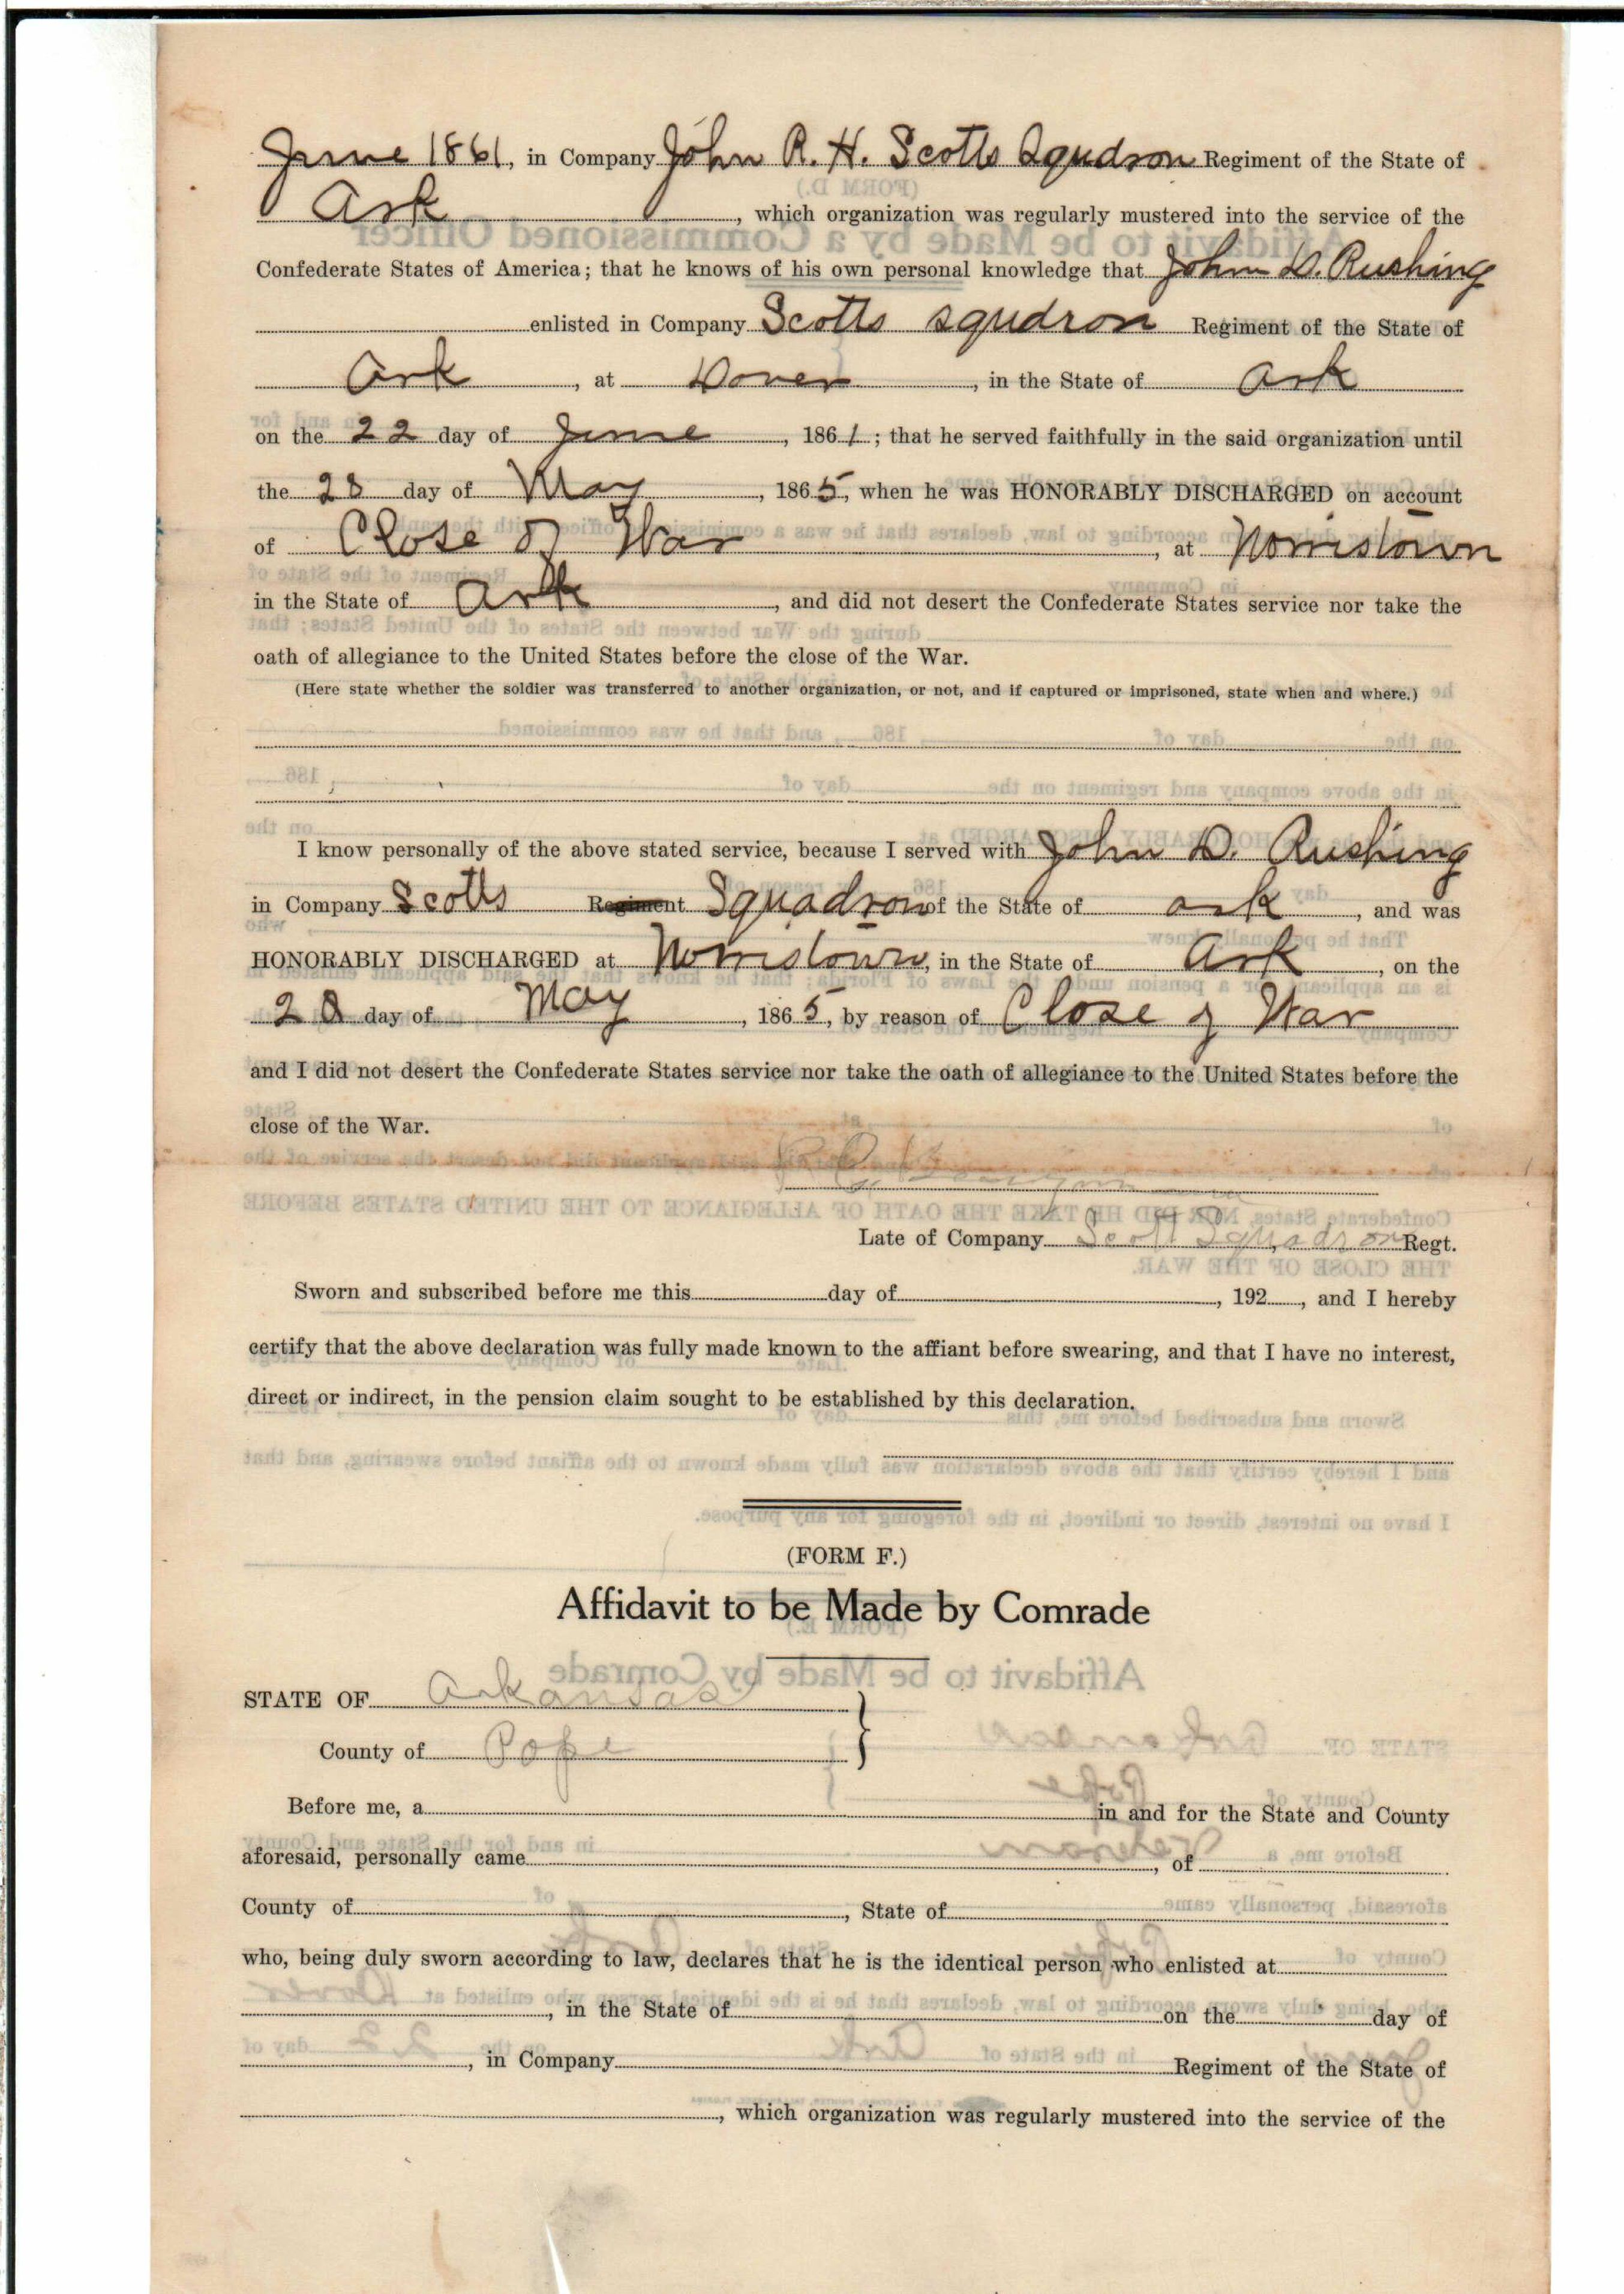 June 1861, in Company John R. H. Scotts Squdron Regiment of the State of
Ark, which organization was regularly mustered into the service of the
Confederate States of America; that he knows of his own personal knowledge that John D. Rushing
enlisted in Company Scotts squdron Regiment of the State of
Ark, at Dover, in the State of Ark
on the 22 day of June, 1861; that he served faithfully in the said organization until
the 28 day of May, 1865, when he was HONORABLY DISCHARGED on account
of Close of War, at Norristown
in the State of Ark, and did not desert the Confederate States service nor take the
oath of allegiance to the United States before the close of the War.
(Here state whether the soldier was transferred to another organization, or not, and if captured or imprisoned, state when and where.)
I know personally of the above stated service, because I served with John D. Rushing
in Company Scotts Regiment Squadron of the State of ark, and was
HONORABLY DISCHARGED at Norristown, in the State of Ark, on the
28 day of May, 1865, by reason of Close of War
and I did not desert the Confederate States service nor take the oath of allegiance to the United States before the
close of the War.
Late of Company Scott Squadron Regt.
Sworn and subscribed before me this day of , 192 , and I hereby
certify that the above declaration was fully made known to the affiant before swearing, and that I have no interest,
direct or indirect, in the pension claim sought to be established by this declaration.
(FORM F.)
Affidavit to be Made by Comrade
STATE OF Arkansas
County of Pope
Before me, a in and for the State and County
aforesaid, personally came , of
County of , State of
who, being duly sworn according to law, declares that he is the identical person who enlisted at
, in the State of on the day of
, in Company Regiment of the State of
, which organization was regularly mustered into the service of the